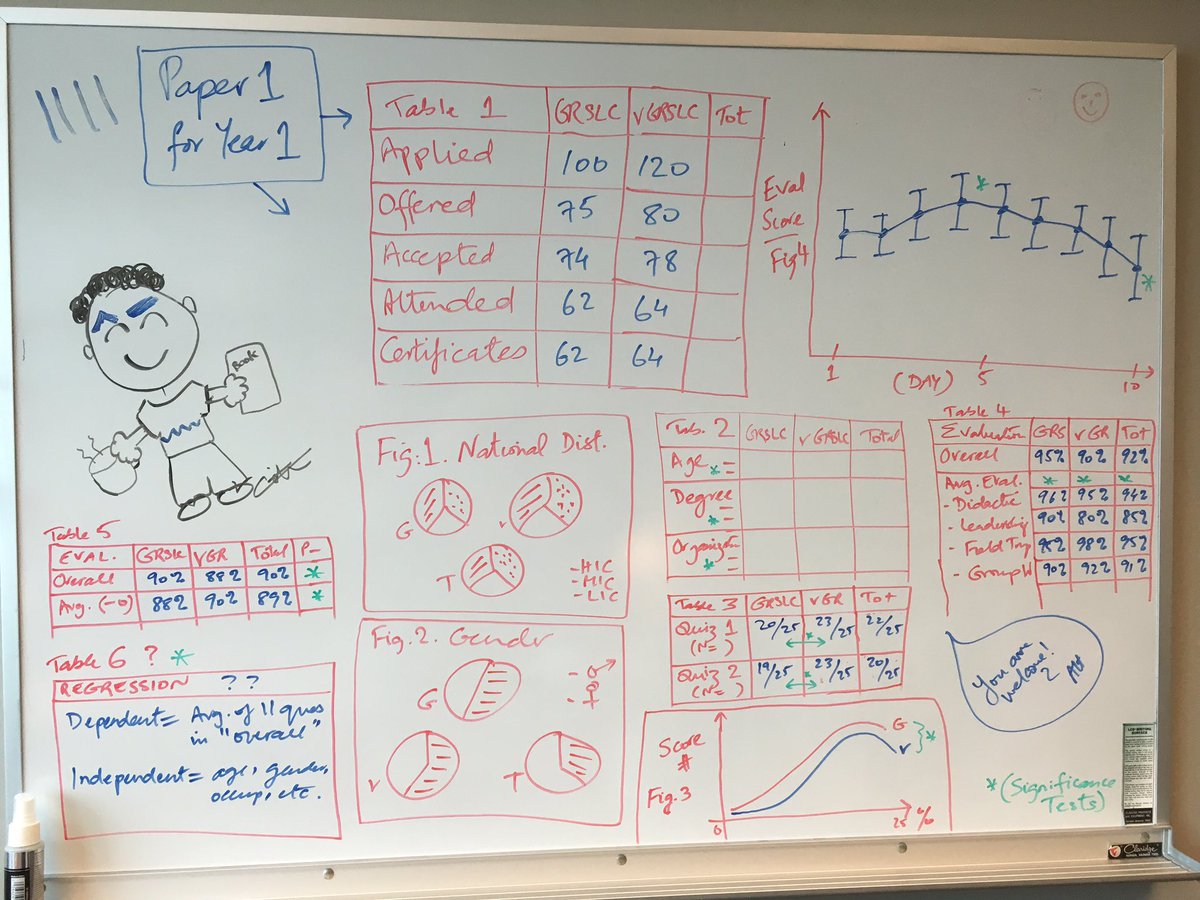 Paper 1
for Year 1
Table 1 GRSLC vGRSLC Tot
Applied 100 120
Offered 75 80
Accepted 74 78
Attended 62 64
Certificates 62 64
Eval
Score
Fig 4
*
*
1 (DAY) 5 10
Book
Fig:1. National Dist.
G V
T
- HIC
- MIC
- LIC
Fig. 2. Gender
- ♂
- ♀
G
V T
Tab. 2 GRSLC vGRSLC Total
Age
* =
Degree
* =
* =
Table 3 GRSLC vGR Tot
Quiz 1 20/25 * 23/25 22/25
(N= )
Quiz 2 19/25 * 23/25 20/25
(N= )
Score
#
Fig. 3
G
V
*
0 25 %
Table 4
Evaluation GRS vGR Tot
Overall 95% 90% 92%
Avg. Eval. * * *
- Didactic 96% 95% 94%
- Leadership 90% 80% 85%
- Field Trip 95% 98% 95%
- Group W 90% 92% 91%
Table 5
EVAL. GRSLC VGR Total P-
Overall 90% 88% 90% *
Avg. (-0) 88% 90% 89% *
Table 6 ? *
REGRESSION ??
Dependent = Avg. of 11 ques
in "overall"
Independent = age, gender,
occup, etc.
You are
welcome!
* (Significance
Tests)
Claridge